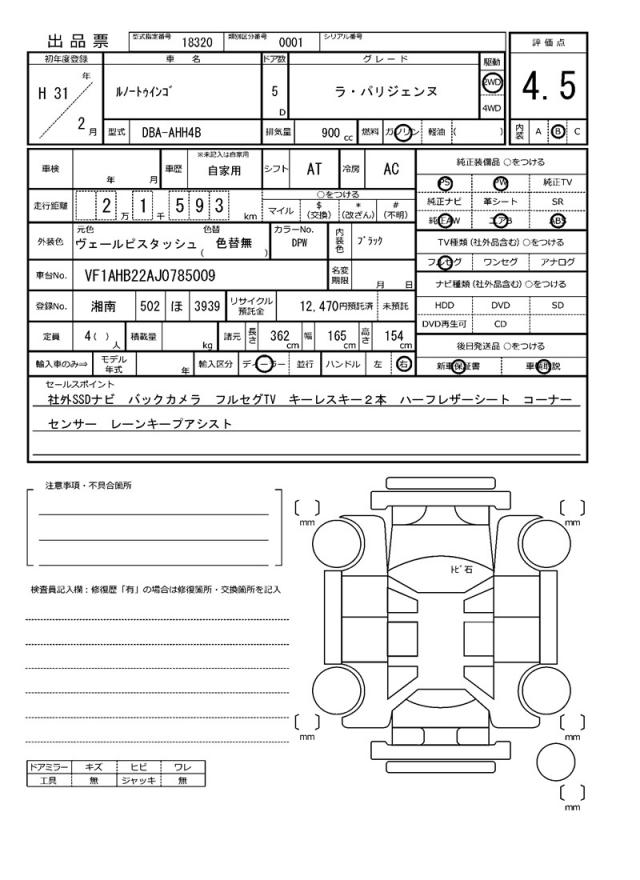 出品票
型式指定番号 18320 類別区分番号 0001 シリアル番号
評価点
初年度登録 車名 ドア数 グレード 駆動
H 31 年 2 月
ルノートゥインゴ 5 D ラ・パリジェンヌ 2WD 4WD
4.5
型式 DBA-AHH4B 排気量 900 cc 燃料 ガソリン 軽油 ( )
内装 A B C
車検 年 月 車歴 ※未記入は自家用 自家用 シフト AT 冷房 AC
純正装備品 ○をつける
PS PW 純正TV
走行距離 2万1千593 km
○をつける
マイル $(交換) *(改ざん) #(不明)
純正ナビ 革シート SR
純正AW エアB ABS
外装色 元色 ヴェールピスタッシュ 色替 (色替無 ) カラーNo. DPW 内装色 ブラック
TV種類(社外品含む)○をつける
フルセグ ワンセグ アナログ
車台No. VF1AHB22AJ0785009 名変期限 月 日
ナビ種類(社外品含む)○をつける
登録No. 湘南 502 ほ 3939 リサイクル預託金 12,470円預託済 未預託
HDD DVD SD
DVD再生可 CD
定員 4( )人 積載量 kg 諸元 長さ 362 cm 幅 165 cm 高さ 154 cm
後日発送品 ○をつける
輸入車のみ⇒ モデル年式 年 輸入区分 ディーラー 並行 ハンドル 左 右
新車保証書 車輌取説
セールスポイント
社外SSDナビ バックカメラ フルセグTV キーレスキー2本 ハーフレザーシート コーナー
センサー レーンキープアシスト
注意事項・不具合箇所
検査員記入欄:修復歴「有」の場合は修復箇所・交換箇所を記入
〔 〕mm 〔 〕mm
トビ石
〔 〕mm 〔 〕mm
〔 〕mm
ドアミラー キズ ヒビ ワレ
工具 無 ジャッキ 無